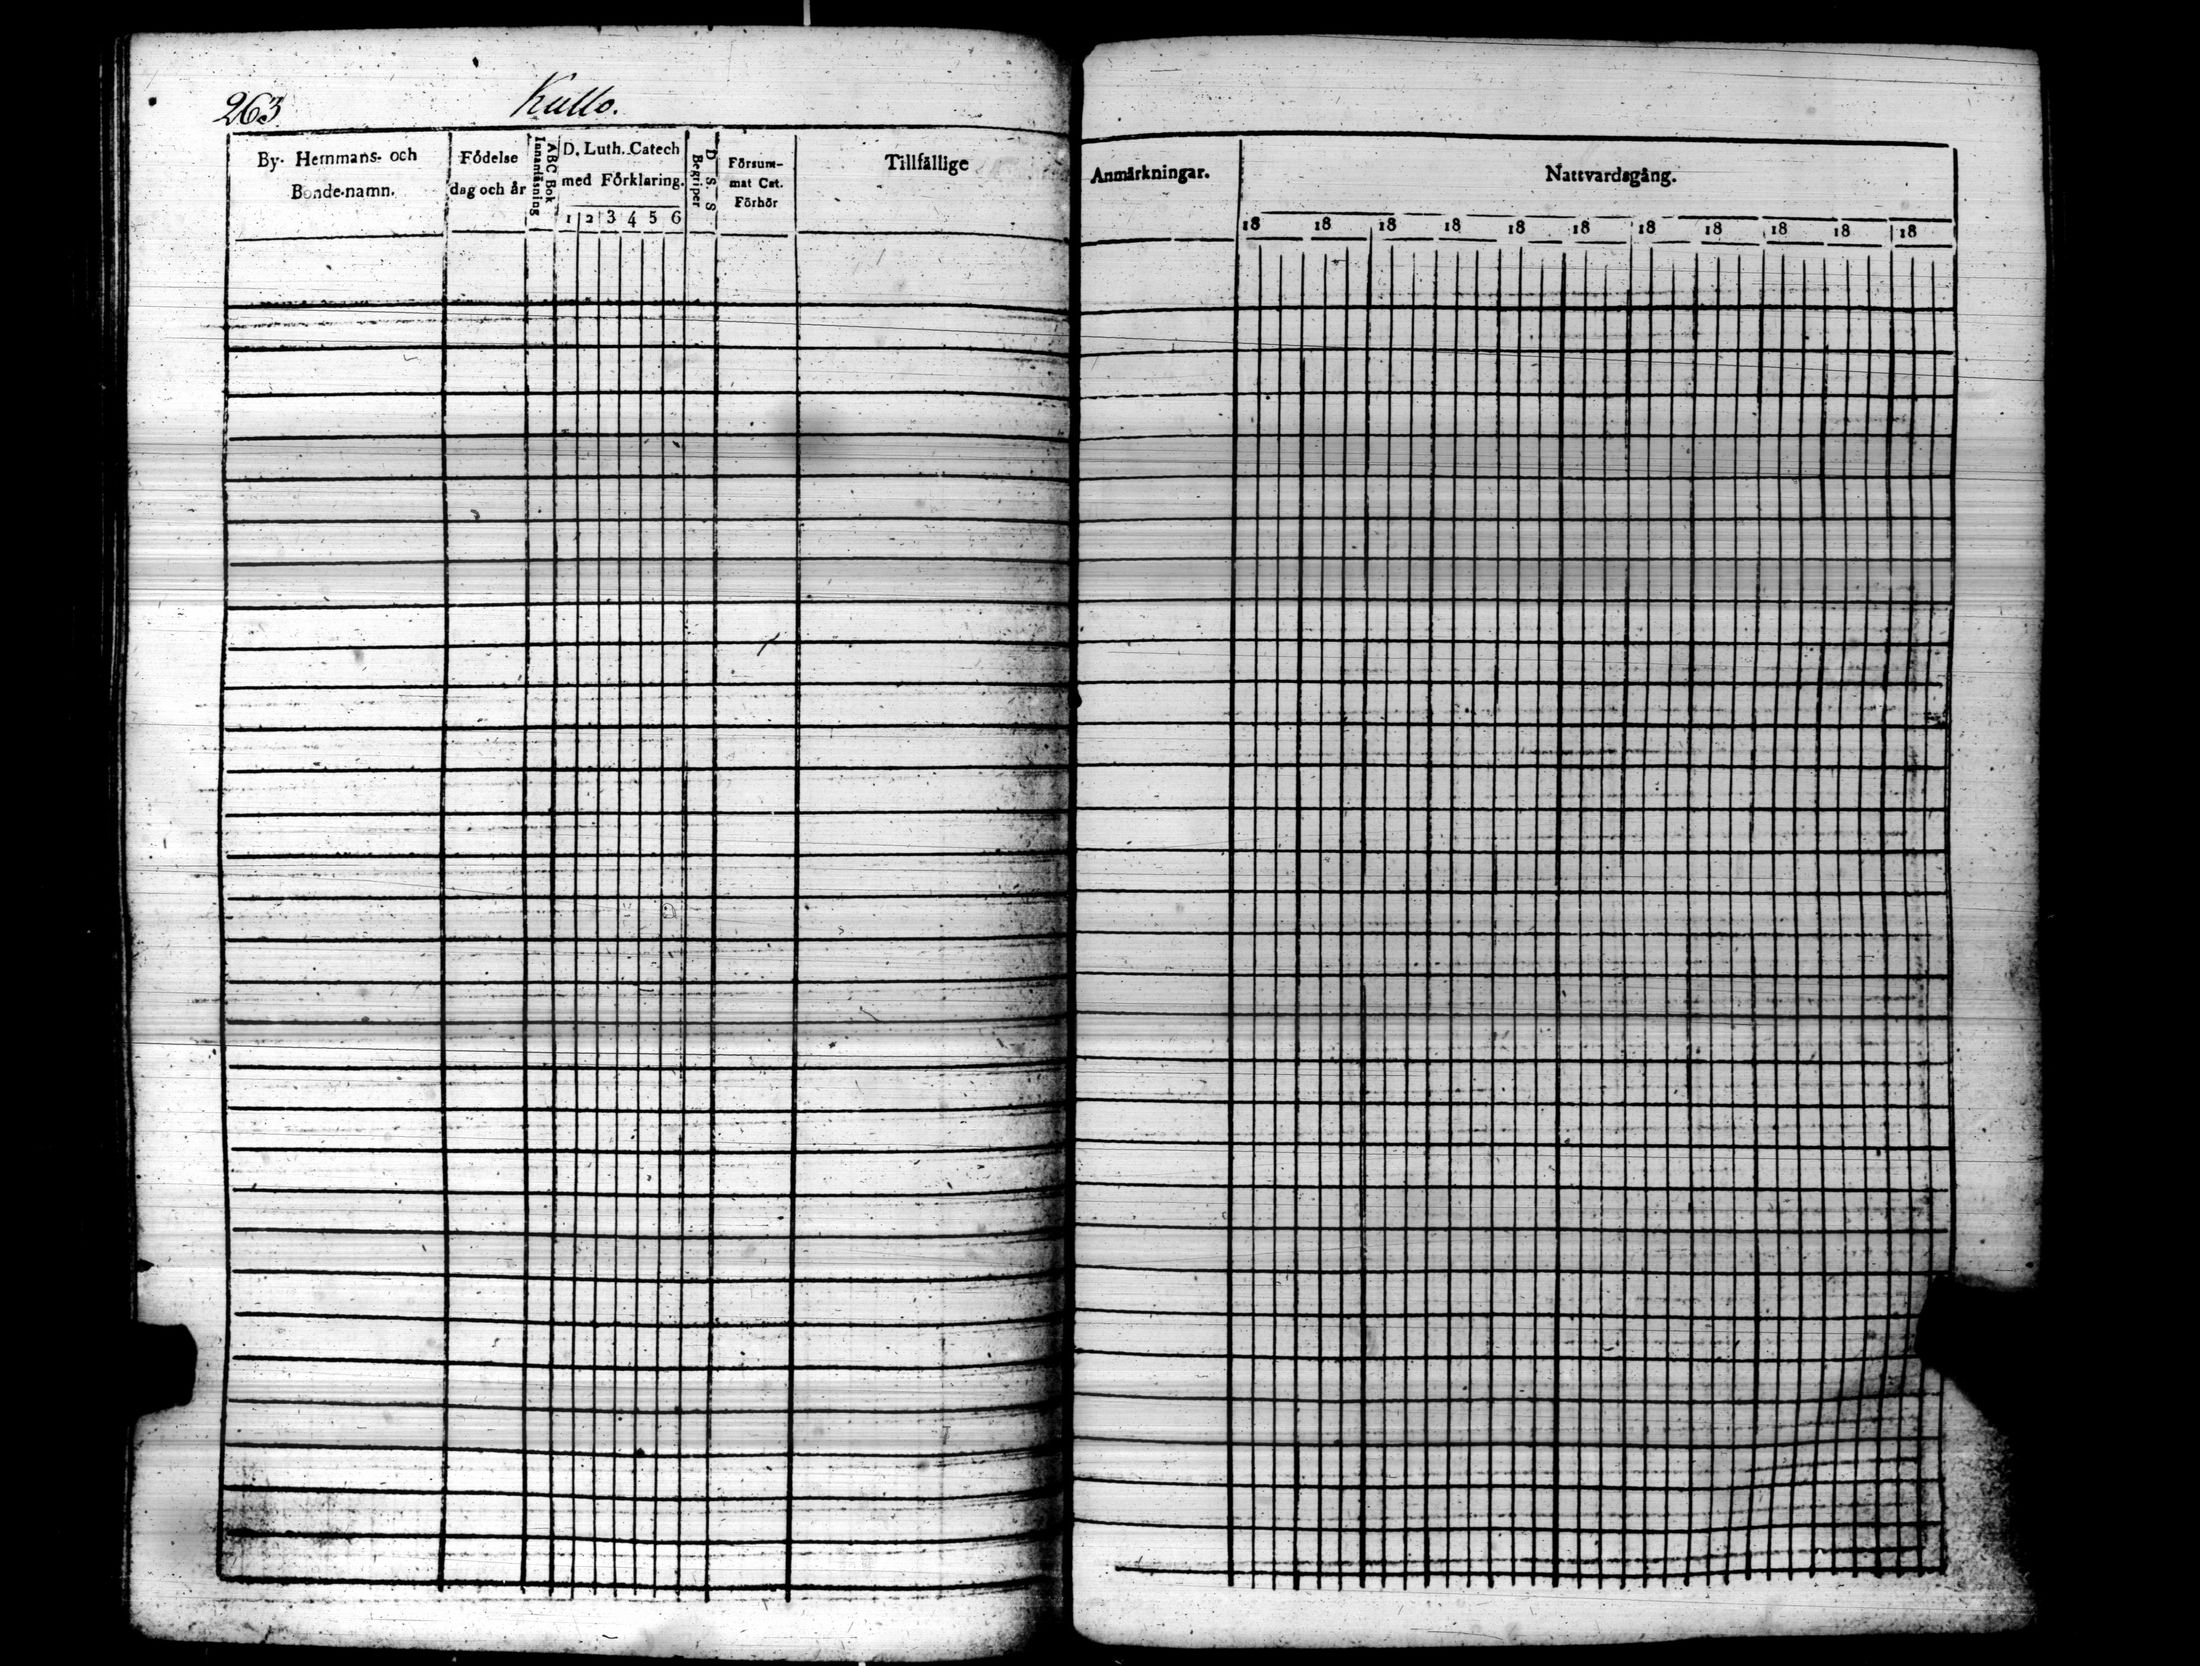 263 Kullo.
By- Hemmans- och
Bonde-namn.
Födelse
dag och år
ABC Bok
Innanläsning
D. Luth. Catech
med Förklaring.
1 2 3 4 5 6
D S S
Begriper
Försum-
mat Cat.
Förhör
Tillfällige
Anmärkningar.
Nattvardsgång.
18 18 18 18 18 18 18 18 18 18 18